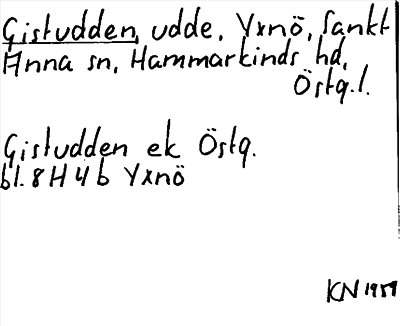 Gistudden, udde, Yxnö, Sankt
Anna sn, Hammarkinds hd,
Östg.l.
Gistudden ek Östg.
bl. 8H 4b Yxnö
KN 1959